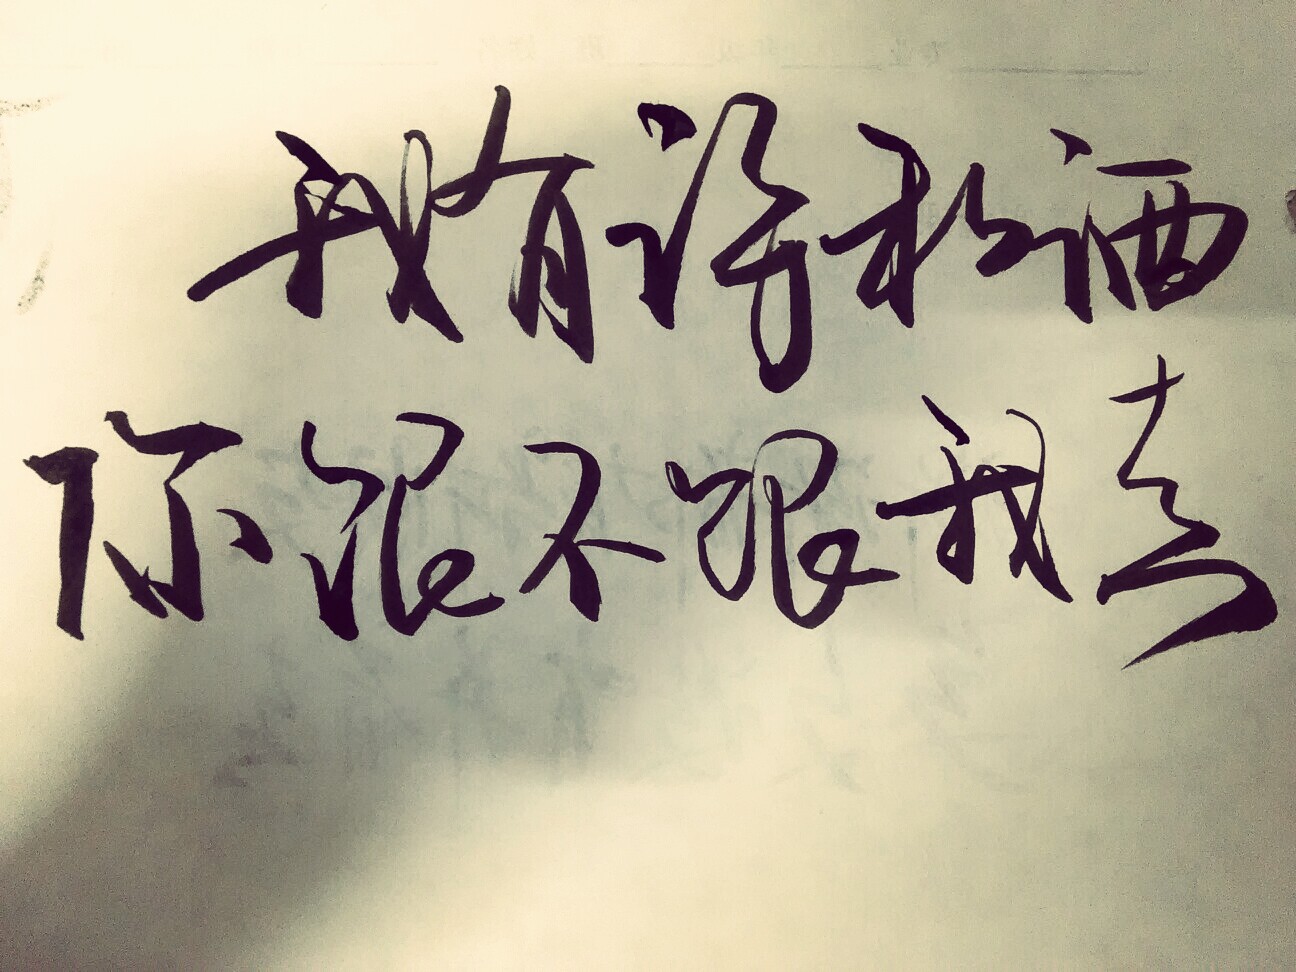 我有诗和酒
你跟不跟我走